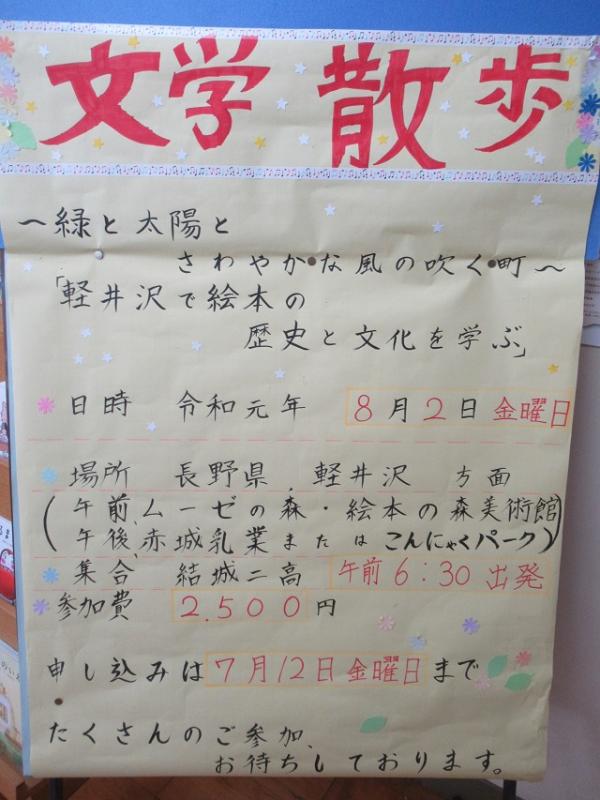 文学散歩
〜緑と太陽と
さわやかな風の吹く町〜
「軽井沢で絵本の
歴史と文化を学ぶ」
日時 令和元年 8月2日金曜日
場所 長野県 軽井沢 方面
(午前、ムーゼの森・絵本の森美術館
午後、赤城乳業または こんにゃくパーク)
集合 結城二高 午前6:30出発
参加費 2.500円
申し込みは7月12日金曜日まで
たくさんのご参加、
お待ちしております。